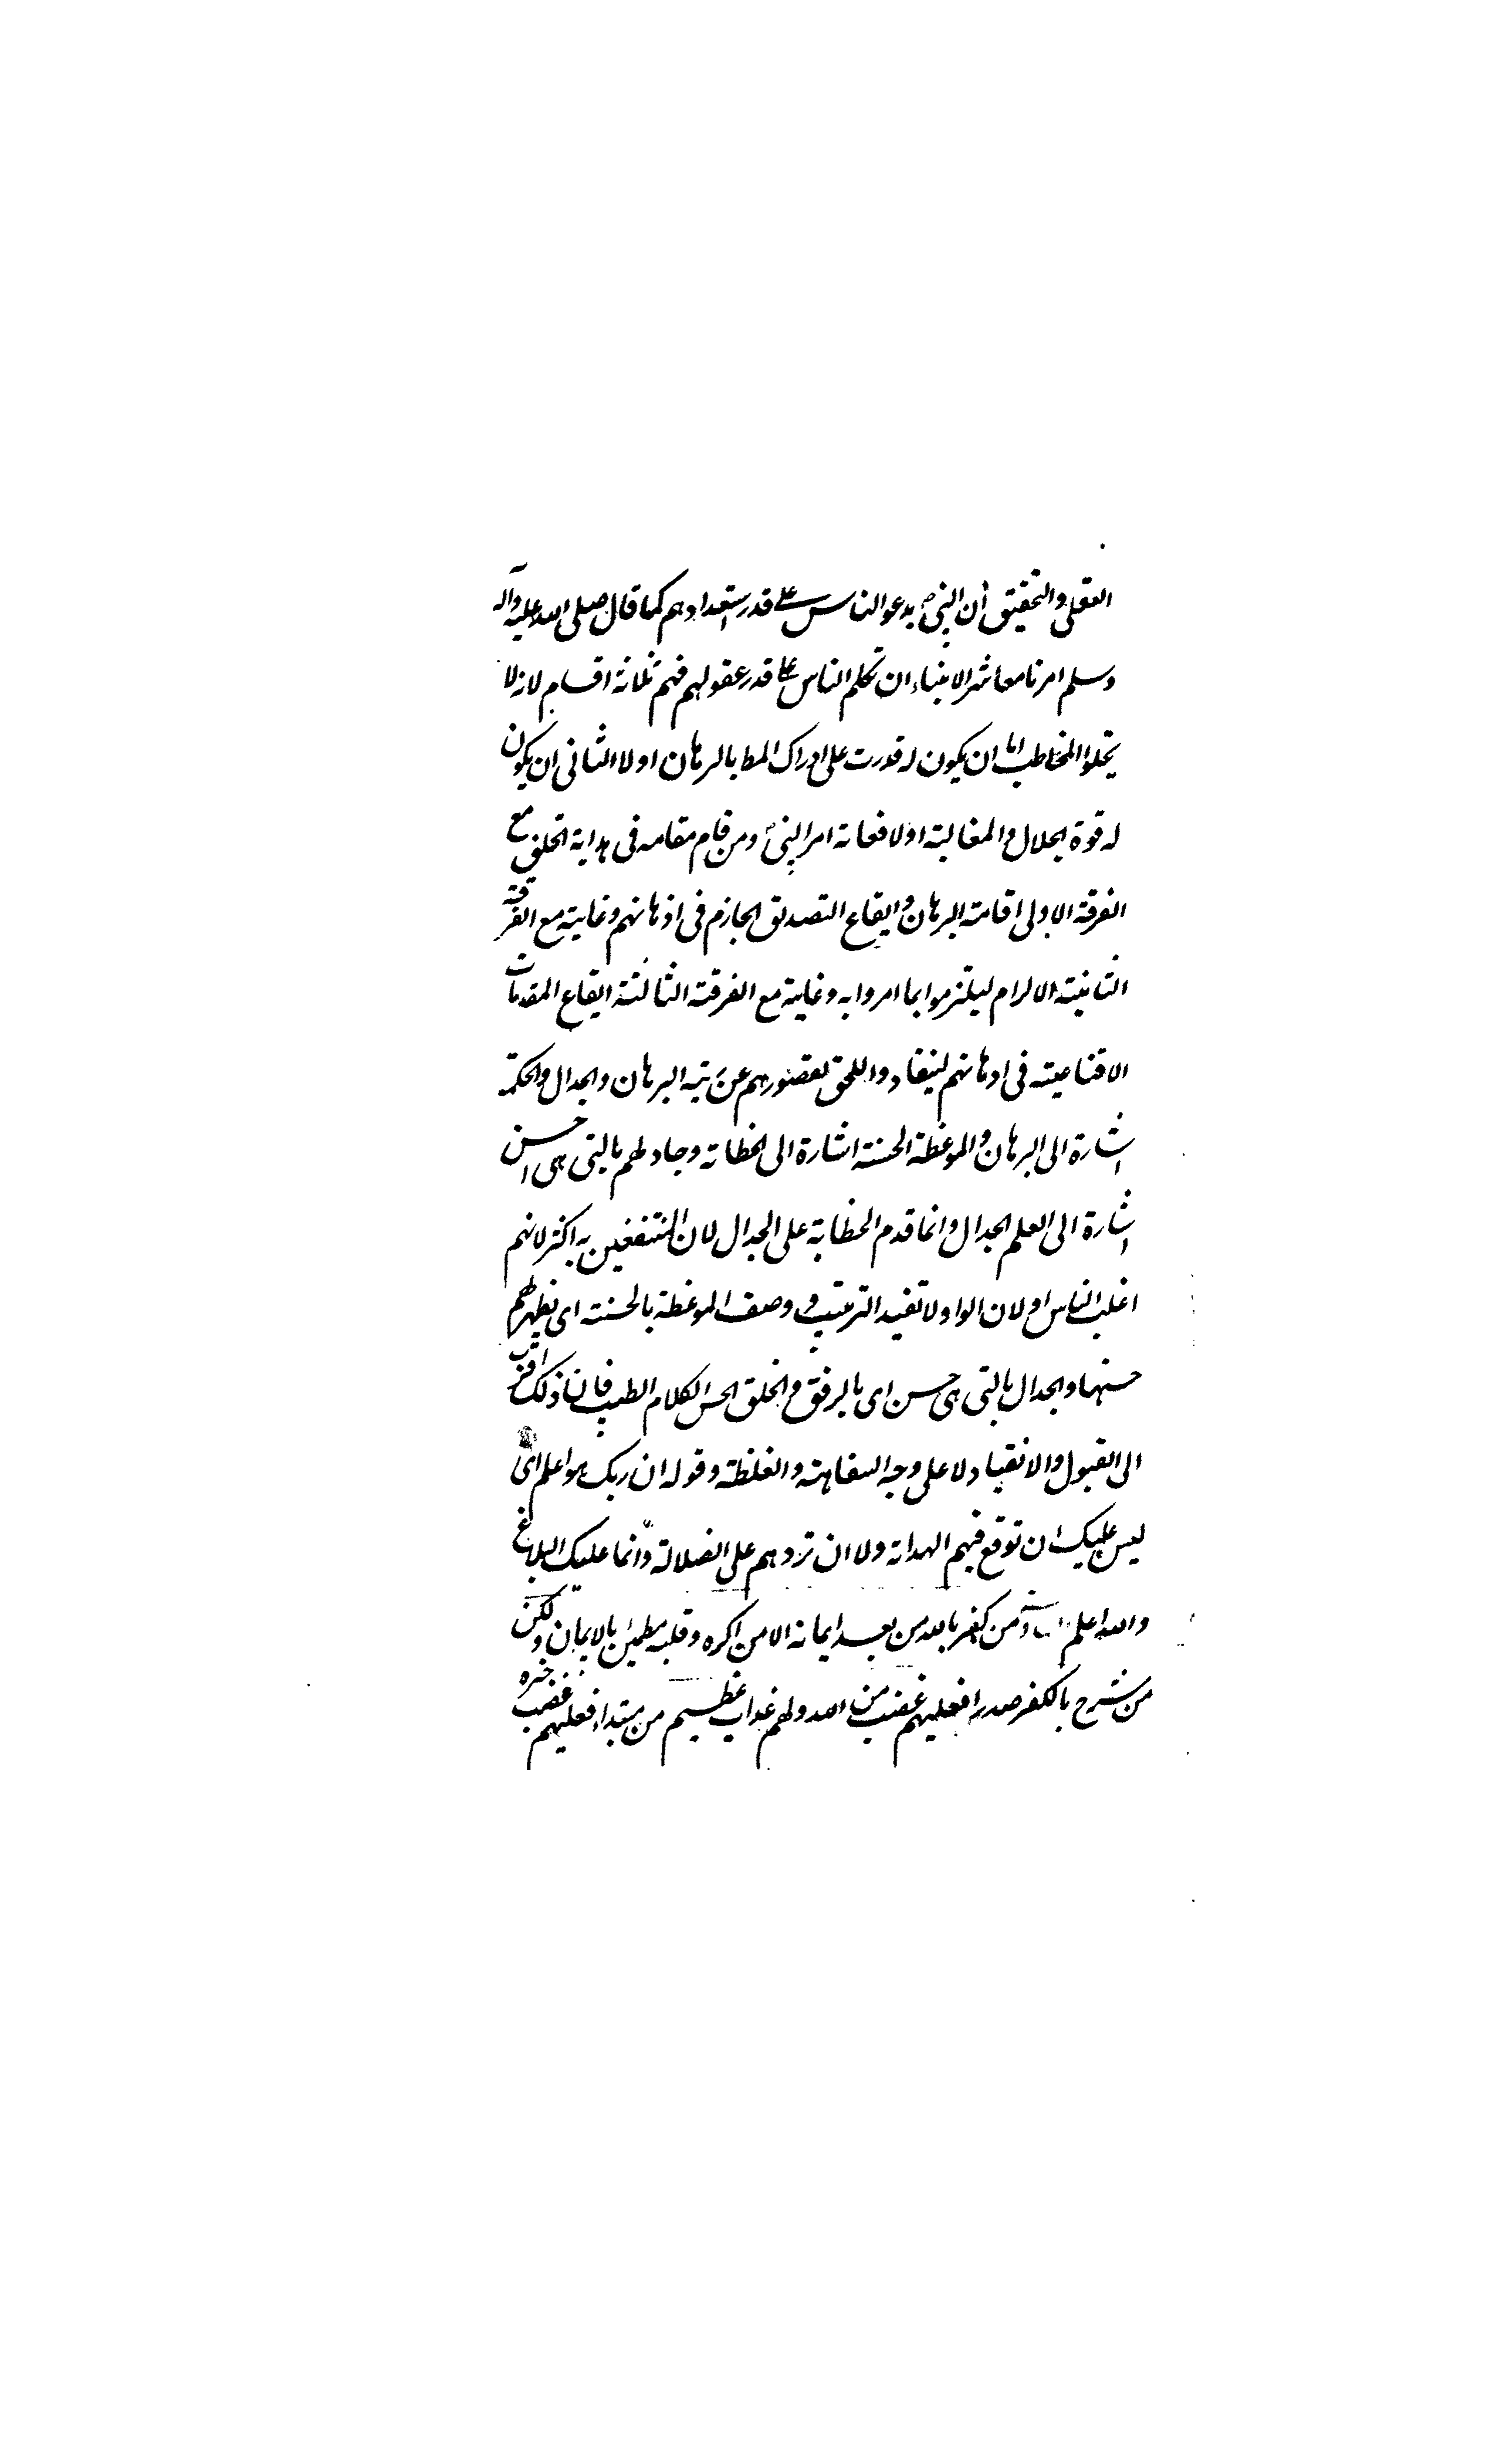 العقلى والتحقيق أن النبى ص يدعو الناس على قدر استعدادهم كما قال صلى الله عليه وآله
وسلم امرنا معاشر الانبياء ان نكلم الناس على قدر عقولهم فهم ثلاثة اقسام لانه لا
يخلو المخاطب اما ان يكون له قدرت على ادراك المط بالبرهان اولا الثانى ان يكون
له قوة الجدال والمغالبة اولا فغاية امر النبى ص ومن قام مقامه فى هداية الخلق مع
الفرقة الاولى اقامة البرهان وايقاع التصديق الجازم فى اذهانهم وغايته مع الفرقة
الثانية الالزام ليلتزموا بما امروا به وغايته مع الفرقة الثالثة ايقاع المقدمات
الاقناعية فى اذهانهم لينقادوا للحق لقصورهم عن رتبة البرهان والجدال والحكمة
اشارة الى البرهان والموعظة الحسنة اشارة الى الخطابة وجادلهم بالتى هى احسن
اشارة الى العلم الجدال وانما قدم الخطابة على الجدال لان المنتفعين به اكثر لانهم
اغلب الناس اولان الواو لا تفيد الترتيب و وصف الموعظة بالحسنة اى يظهر لهم
حسنها والجدال بالتى هى احسن اى بالرفق والخلق الحسن الكلام الطيب فان ذلك اقرب
الى القبول والانقياد لا على وجه السفاهة والغلظة وقوله ان ربك هو اعلم اى
ليس عليك ان توقع فيهم الهداية ولا ان تردهم على الضلالة وانما عليك البلاغ
والله اعلم من كفر بالله من بعد ايمانه الا من اكره وقلبه مطمئن بالايمان ولكن
من شرح بالكفر صدرا فعليهم غضب من الله ولهم عذاب عظيم من مبتداء فعليهم غضب خبره